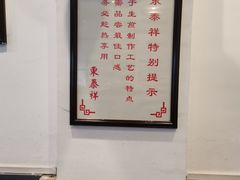 東泰祥特别提示
于生煎制作工艺的特点
品尝最佳口感
趁热享用
東泰祥